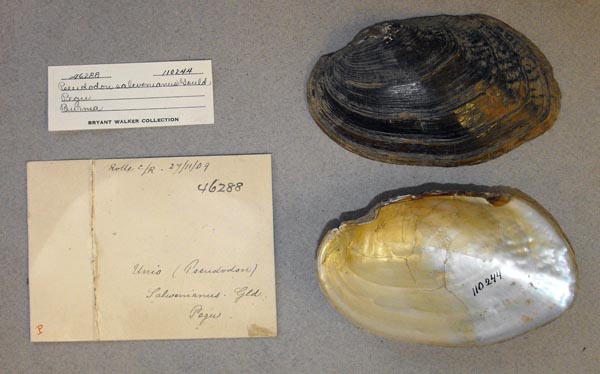 46288 110244
Pseudodon salwenianus Gould
Pegu
Burma
BRYANT WALKER COLLECTION
Rolle c/R. 27/11/09
46288
Unio (Pseudodon)
Salwenianus. Gld.
Pegu
110244